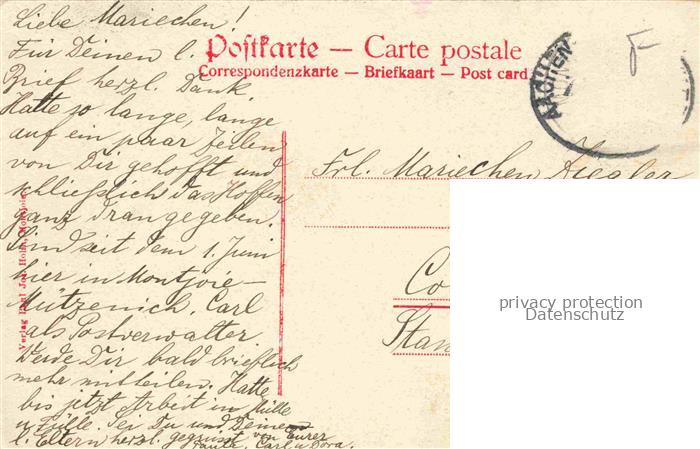 Liebe Mariechen!
Für Deinen l.
Brief herzl. Dank.
Hatte so lange, lange
auf ein paar Zeilen
von Dir gehofft und
schließlich das Hoffen
ganz drangegeben.
Sind seit dem 1. Juni
hier in Montjoie-
Mützenich, Carl
als Postverwalter.
Werde Dir bald brieflich
mehr mitteilen. Hatte
bis jetzt Arbeit in Hülle
u. Fülle. Sei Du und Deine
l. Eltern herzl. gegrüsst von Eurer
Tante, Carl u. Dora.
Postkarte — Carte postale
Correspondenzkarte — Briefkaart — Post card.
AACHEN
Frl. Mariechen Ziegler
Co
Stan
Verlag Paul Jos.
privacy protection
Datenschutz